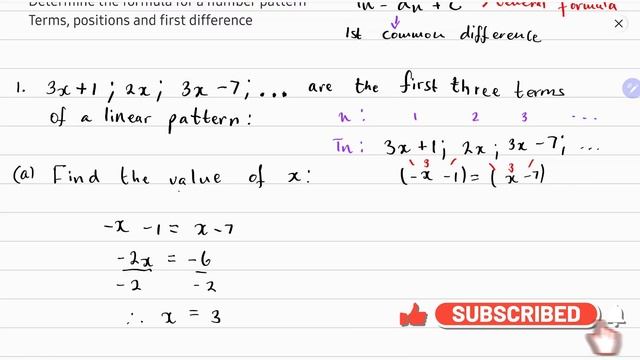 Determine the formula for a number pattern
Terms, positions and first difference
Tn = an + c → general formula
1st common difference
1. 3x+1 ; 2x ; 3x -7 ; ... are the first three terms
of a linear pattern :
n : 1 2 3 ...
Tn : 3x+1 ; 2x ; 3x-7 ; ...
3 3
(-x -1) = (x -7)
(a) Find the value of x :
-x -1 = x -7
-2x = -6
-2 -2
∴ x = 3
SUBSCRIBED